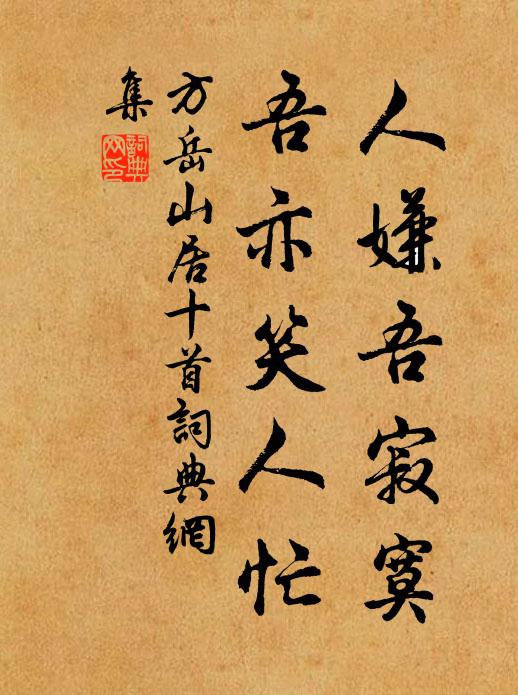 人嫌吾寂寞
吾亦笑人忙
方岳山居十首詞典網
集
詞典網印